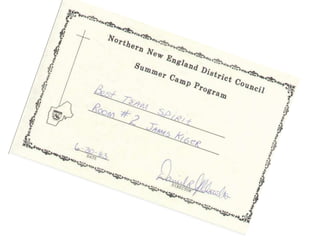 Northern New England District Council
Summer Camp Program
BEST TEAM SPIRIT
ROOM #2 JAMES KIGER
6-30-83
DATE
DIRECTOR